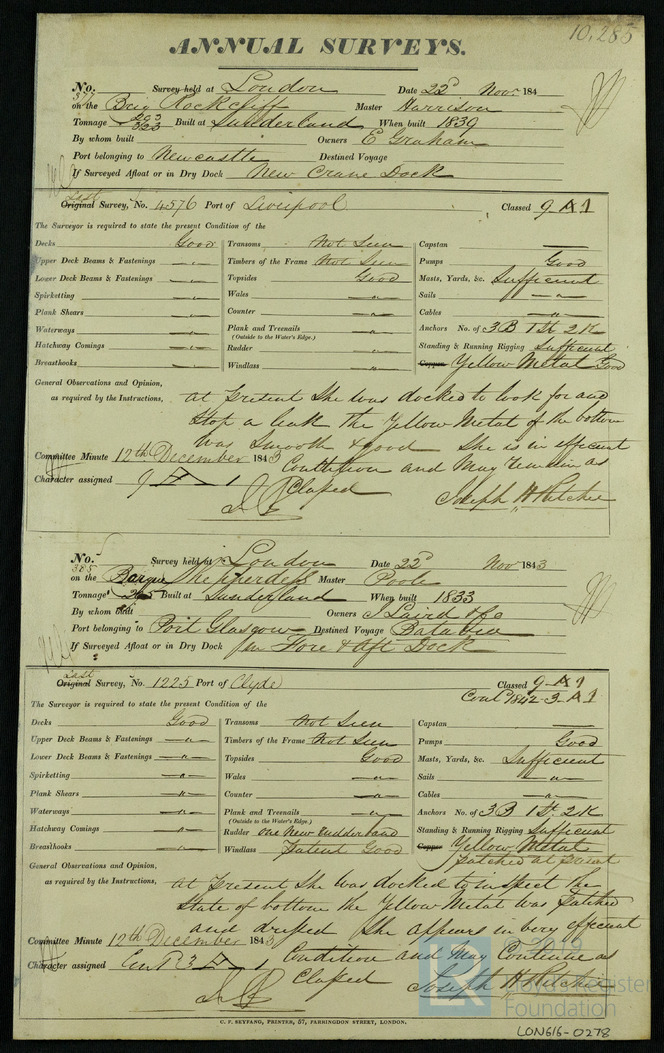 10,285
ANNUAL SURVEYS.
No. 377 Survey held at London Date 22d Novr 184
on the Brig Rockcliff Master Harrison
Tonnage 293 323 Built at Sunderland When built 1839
By whom built Owners E Graham
Port belonging to Newcastle Destined Voyage
If Surveyed Afloat or in Dry Dock New Crane Dock
Last
Original Survey, No. 4576 Port of Liverpool Classed 9 A 1
The Surveyor is required to state the present Condition of the
Decks Good Transoms Not Seen Capstan
Upper Deck Beams & Fastenings " Timbers of the Frame Not Seen Pumps Good
Lower Deck Beams & Fastenings " Topsides Good Masts, Yards, &c. Sufficient
Spirketting " Wales " Sails "
Plank Shears " Counter " Cables "
Waterways " Plank and Treenails " Anchors No. of 3B 1 St 2 K
(Outside to the Water's Edge.)
Hatchway Comings " Rudder " Standing & Running Rigging Sufficient
Breasthooks " Windlass " Copper Yellow Metal Good
General Observations and Opinion,
as required by the Instructions,
at Present She was docked to look for and
Stop a leak the Yellow Metal of the bottom
was Smooth & good She is in efficient
Committee Minute 12th December 1843
Condition and May remain as
Character assigned 9 A 1
Classed Joseph H Ritchie
No. 385 Survey held at London Date 22d Nov 1843
on the Barque Shepperdess Master Poole
Tonnage Built at Sunderland When built 1833
By whom built Owners J Laird & Co
Port belonging to Port Glasgow Destined Voyage Batavia
If Surveyed Afloat or in Dry Dock Fore & Aft Dock
Last
Original Survey, No. 1225 Port of Clyde Classed 9 A 1
Contd 1842-3-A1
The Surveyor is required to state the present Condition of the
Decks Good Transoms Not Seen Capstan
Upper Deck Beams & Fastenings " Timbers of the Frame Not Seen Pumps Good
Lower Deck Beams & Fastenings " Topsides Good Masts, Yards, &c. Sufficient
Spirketting " Wales " Sails "
Plank Shears " Counter " Cables "
Waterways " Plank and Treenails " Anchors No. of 3B 1 St. 2 K
(Outside to the Water's Edge.)
Hatchway Comings " Rudder one New Standing & Running Rigging Sufficient
Breasthooks " Windlass Patent Good Copper Yellow Metal
Patched at Present
General Observations and Opinion,
as required by the Instructions,
at Present She was docked to inspect the
State of bottom the Yellow Metal was Patched
and She appears in very efficient
Committee Minute 12th December 1843
Condition and May Continue as
Character assigned Cont 3 A 1
Classed Joseph H Ritchie
C. F. SEYFANG, PRINTER, 57, FARRINGDON STREET, LONDON.
© 2019
LR
Lloyd's Register
Foundation
LON616-0278